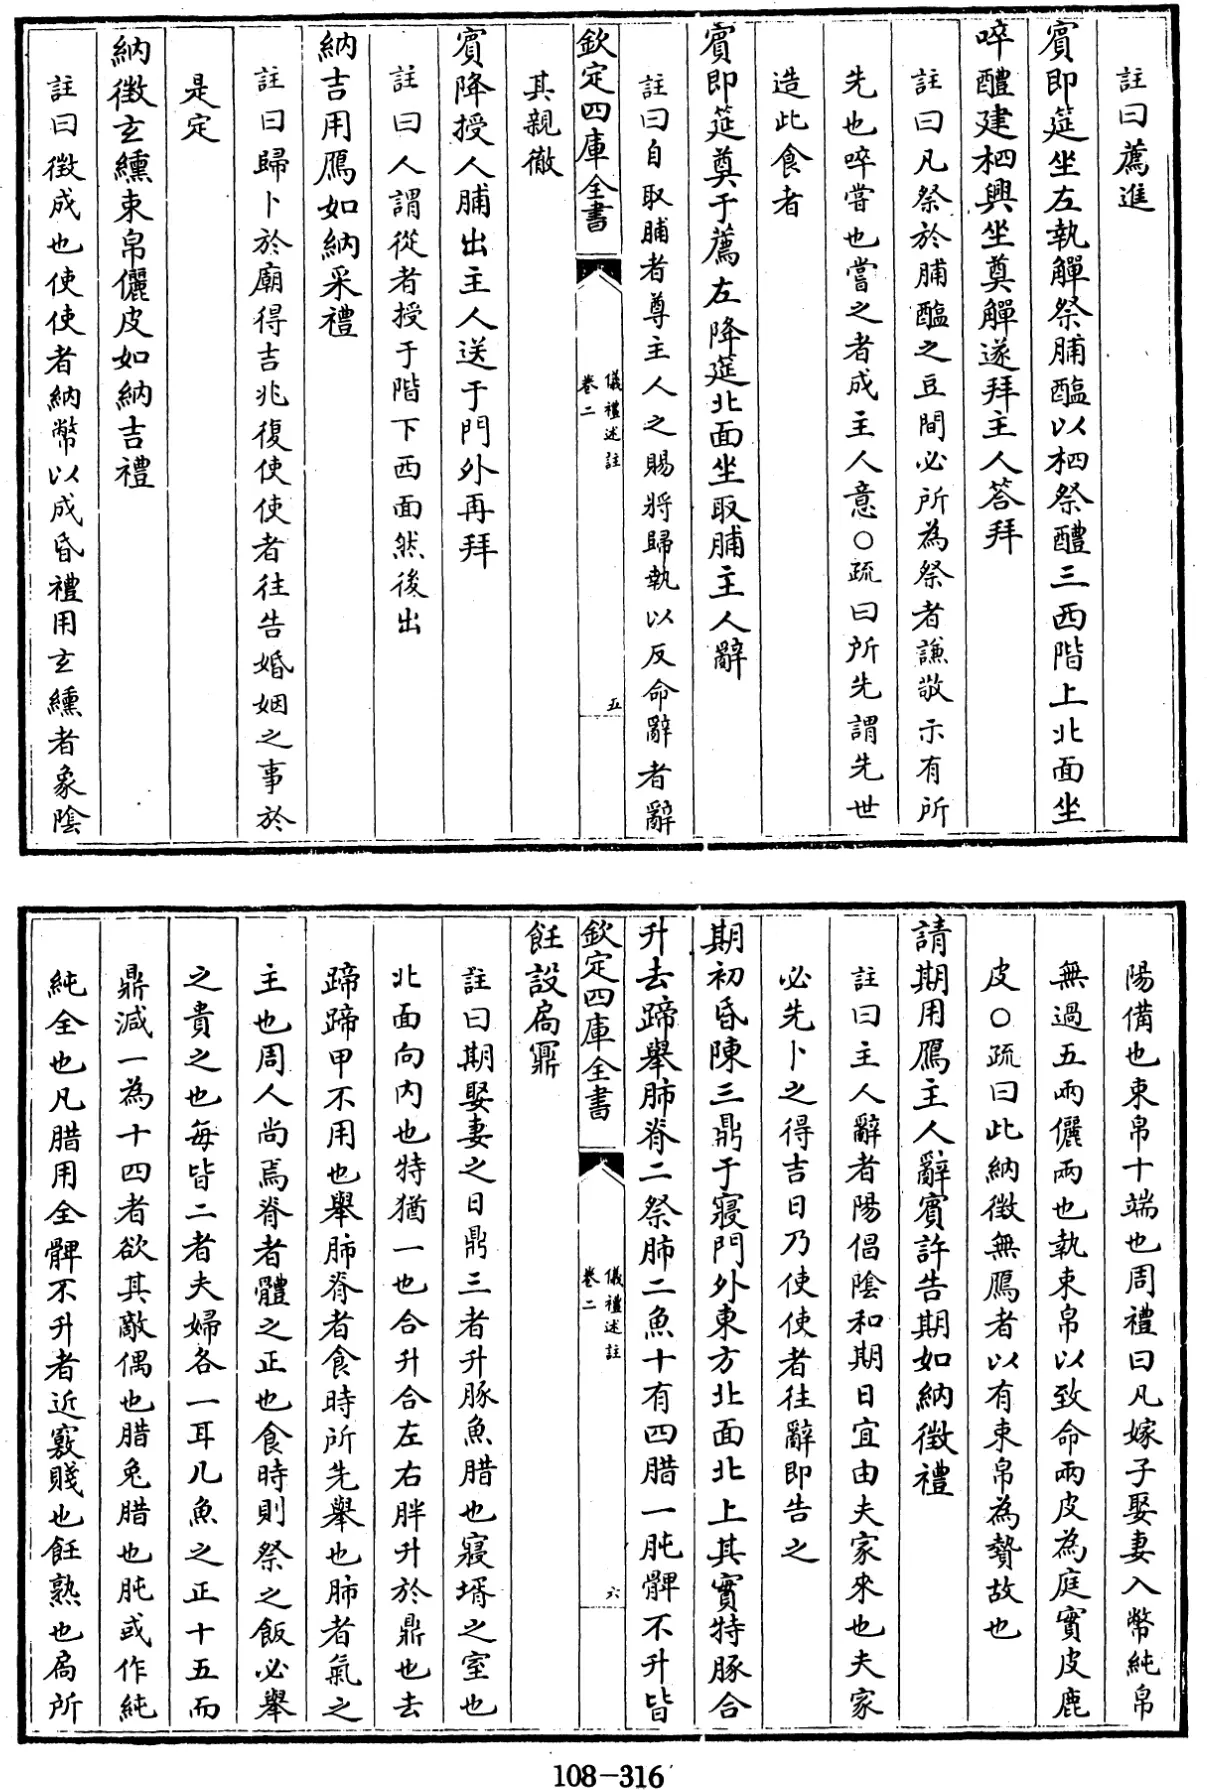 註曰薦進
賓即筵坐左執觶祭脯醢以柶祭醴三西階上北面坐
啐醴建柶興坐奠觶遂拜主人荅拜
註曰凡祭於脯醢之豆間必所為祭者謙敬示有所
先也啐嘗也嘗之者成主人意○疏曰所先謂先世
造此食者
賓即筵奠于薦左降筵北面坐取脯主人辭
註曰自取脯者尊主人之賜將歸執以反命辭者辭
欽定四庫全書
儀禮述註
卷二
五
其親徹
賓降授人脯出主人送于門外再拜
註曰人謂從者授于階下西面然後出
納吉用鴈如納采禮
註曰歸卜於廟得吉兆復使使者往告婚姻之事於
是定
納徵玄纁束帛儷皮如納吉禮
註曰徵成也使使者納幣以成昏禮用玄纁者象陰
陽備也束帛十端也周禮曰凡嫁子娶妻入幣純帛
無過五兩儷兩也執束帛以致命兩皮為庭實皮鹿
皮○疏曰此納徵無鴈者以有束帛為贄故也
請期用鴈主人辭賓許告期如納徵禮
註曰主人辭者陽倡陰和期日宜由夫家來也夫家
必先卜之得吉日乃使使者往辭即告之
期初昏陳三鼎于寢門外東方北面北上其實特豚合
升去蹄舉肺脊二祭肺二魚十有四腊一肫髀不升皆
欽定四庫全書
儀禮述註
卷二
六
飪設扃鼏
註曰期娶妻之日鼎三者升豚魚腊也寢壻之室也
北面向內也特猶一也合升合左右胖升於鼎也去
蹄蹄甲不用也舉肺脊者食時所先舉也肺者氣之
主也周人尚焉脊者體之正也食時則祭之飯必舉
之貴之也每皆二者夫婦各一耳凡魚之正十五而
鼎減一為十四者欲其敵偶也腊兔腊也肫或作純
純全也凡腊用全髀不升者近竅賤也飪熟也扃所
108-316